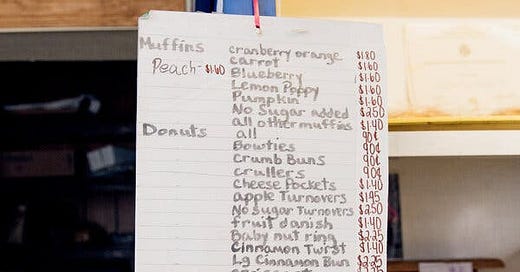 Muffins cranberry orange $1.80
carrot $1.60
Peach-$1.60 Blueberry $1.60
Lemon Poppy $1.60
Pumpkin $1.60
No Sugar added $2.50
all other muffins $1.40
Donuts all 90¢
Bowties 90¢
Crumb Buns 90¢
crullers 90¢
cheese Pockets $1.40
apple Turnovers $1.45
No Sugar Turnovers $2.50
fruit danish $1.40
Baby nut ring $2.25
Cinnamon Twist $1.40
Lg Cinnamon Bun $2.25